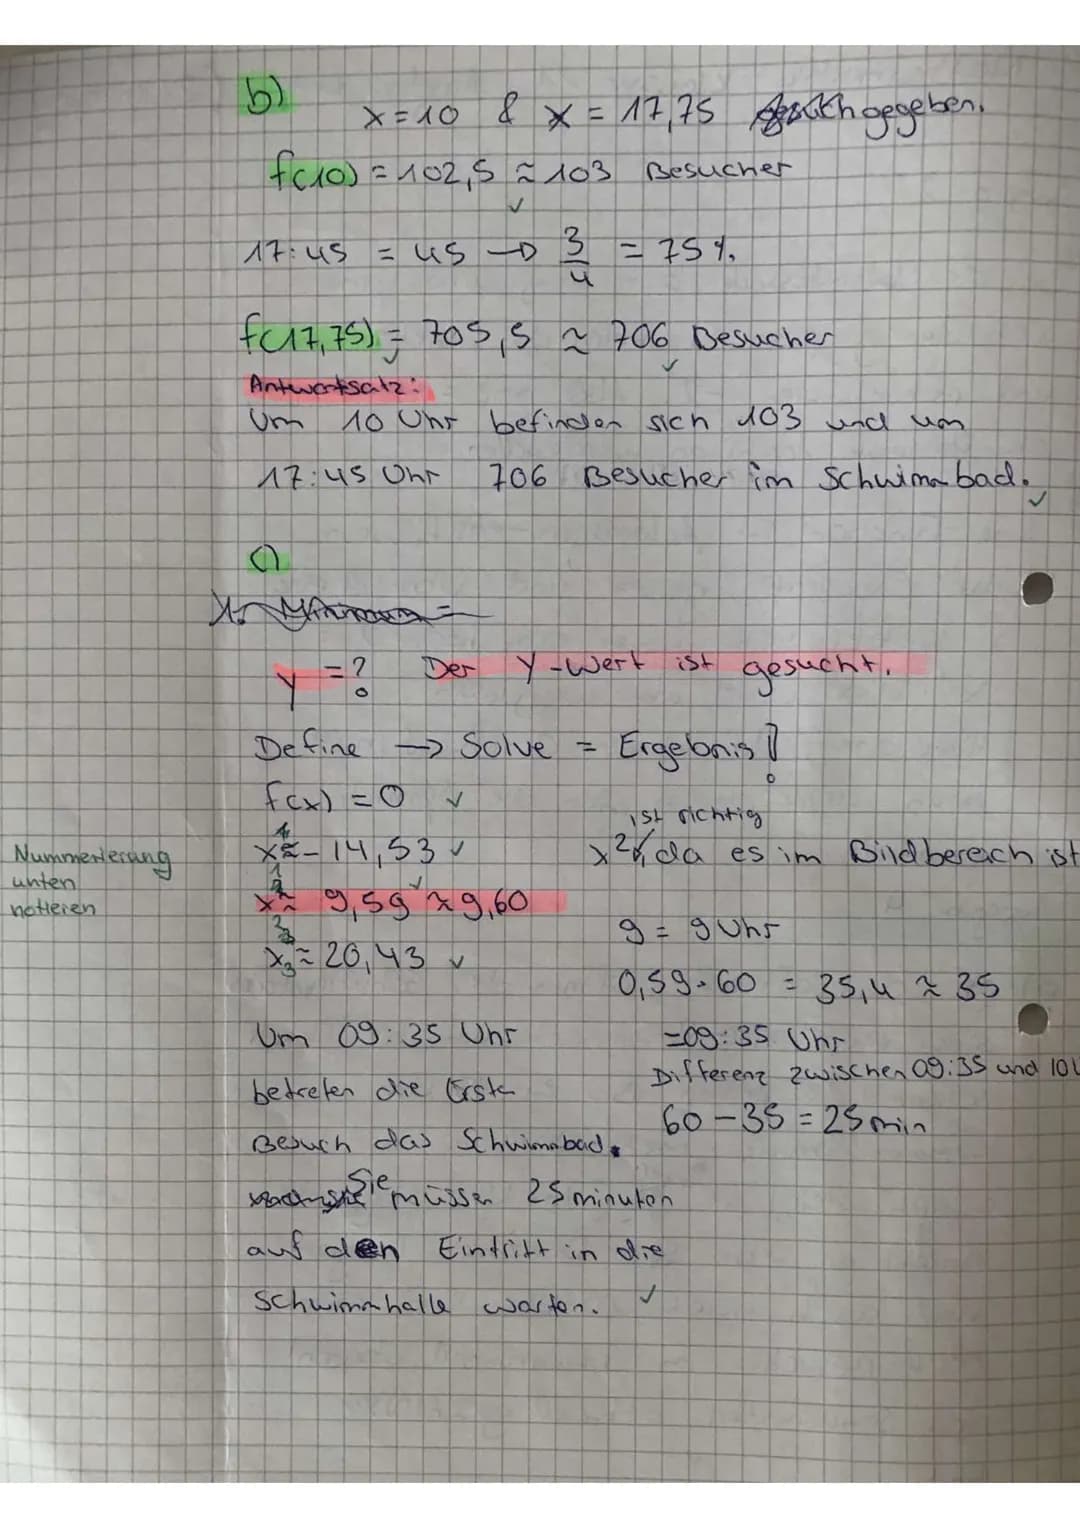 b)
x = 10 & x = 17,75 gegeben.
f(10) = 102,5 ≈ 103 Besucher
✓
17:45 = 45 → 3/4 = 75 %.
f(17,75) = 705,5 ≈ 706 Besucher
✓ ✓
Antwortsatz:
Um 10 Uhr befinden sich 103 und um
17:45 Uhr 706 Besucher im Schwimmbad. ✓
c)
y = ? Der y-Wert ist gesucht.
Define → Solve = Ergebnis!
f(x) = 0 ✓
ist richtig
x ≈ -14,53 ✓
x2, da es im Bildbereich ist
Nummerierung
unten
notieren
x ≈ 9,59 ≈ 9,60
✓
9 = 9 Uhr
x3 ≈ 20,43 ✓
0,59·60 = 35,4 ≈ 35
Um 09:35 Uhr
=09:35 Uhr
Differenz zwischen 09:35 und 10U
betreten die Erste
60 - 35 = 25 min
Besuch das Schwimmbad.
Sie müssen 25 minuten
auf den Eintritt in die
Schwimmhalle warten. ✓